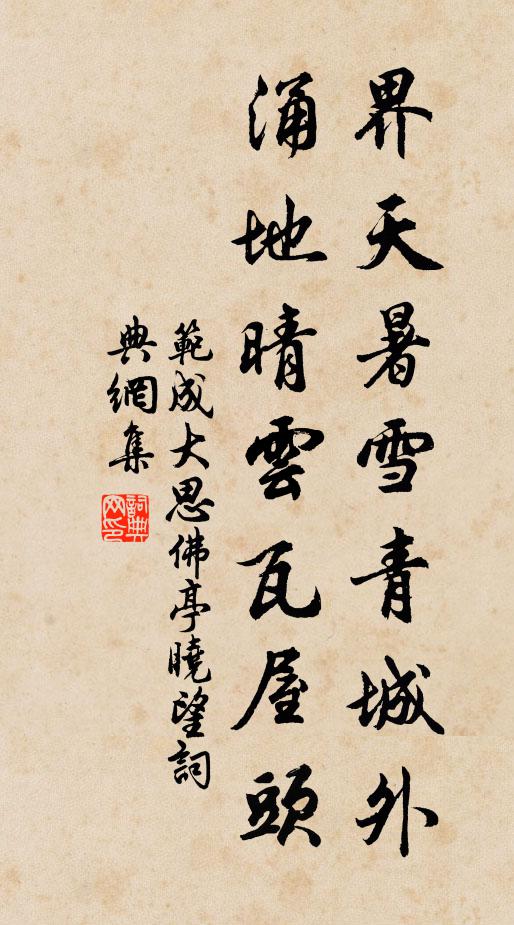 界天暑雪青城外
涌地晴雲瓦屋頭
範成大思佛亭曉望詞
典網集
詞典
网印